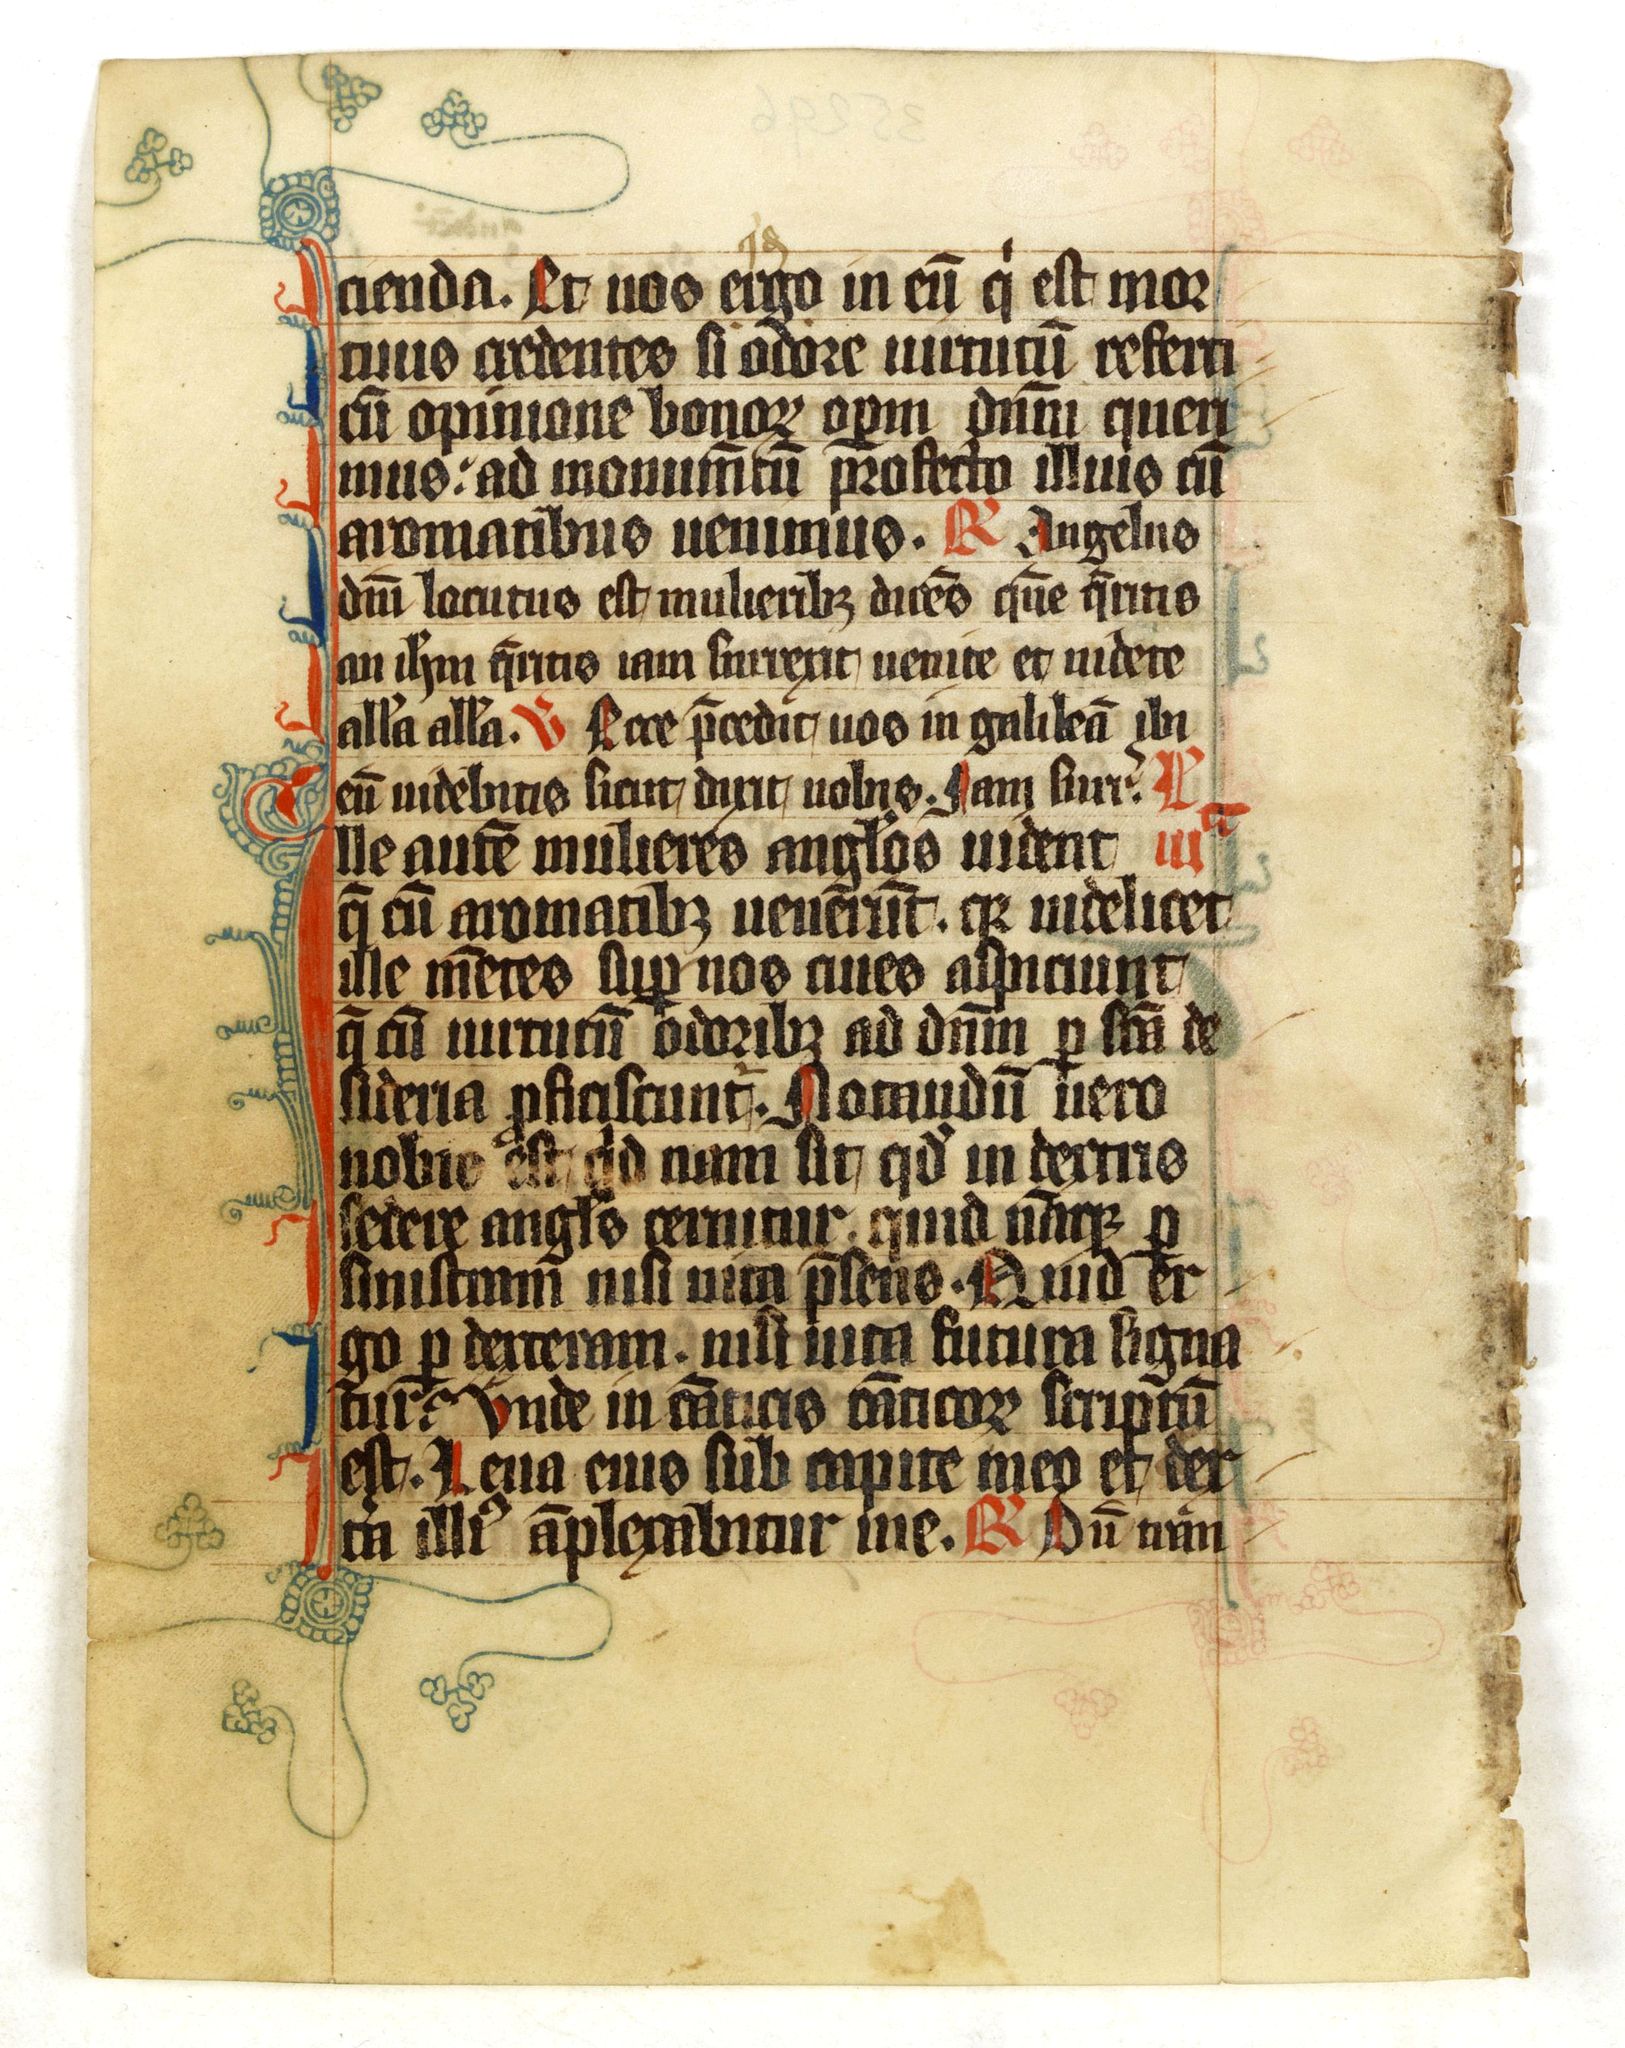 cienda. Et nos ergo in eū qͥ est mor
tuus credentes si odore uirtutū referti
cū opinione bonoꝝ oꝑm dn̄m queri
mus: ad monum̄tū ꝓfecto illius cū
aromatibus uenimus. R Angelus
dn̄i locutus est mulieribꝫ dicēs quē q̄ritis
an ih̄m q̄ritis iam surrexit uenite et uidete
all'a all'a. V Ecce p̄cedit uos in galileā ibi
eū uidebitis sicut dixit uobis. Iam surr̉. L
Ille autē mulieres angl'os uident iiiᵃ
q̄ cū aromatibꝫ uenerūt. qꝛ uidelicet
ille mētes suꝑnos ciues aspiciunt
q̄ cū uirtutū odoribꝫ ad dn̄m ꝑ sc̄a de
sideria ꝓficiscunt̉. Notandū uero
nobis est qͥd nam sit qd̓ in dextris
sedere angl's cernitur. quid nāqꝫ ꝑ
sinistram nisi uita p̄sens. Quid er
go ꝑ dexteram. nisi uita futura signa
tur? Vnde in cāticis cāticoꝝ scriptū
est. Leua eius sub capite meo et dex
t̉a illiꝰ āplexabitur me. R Dū tran